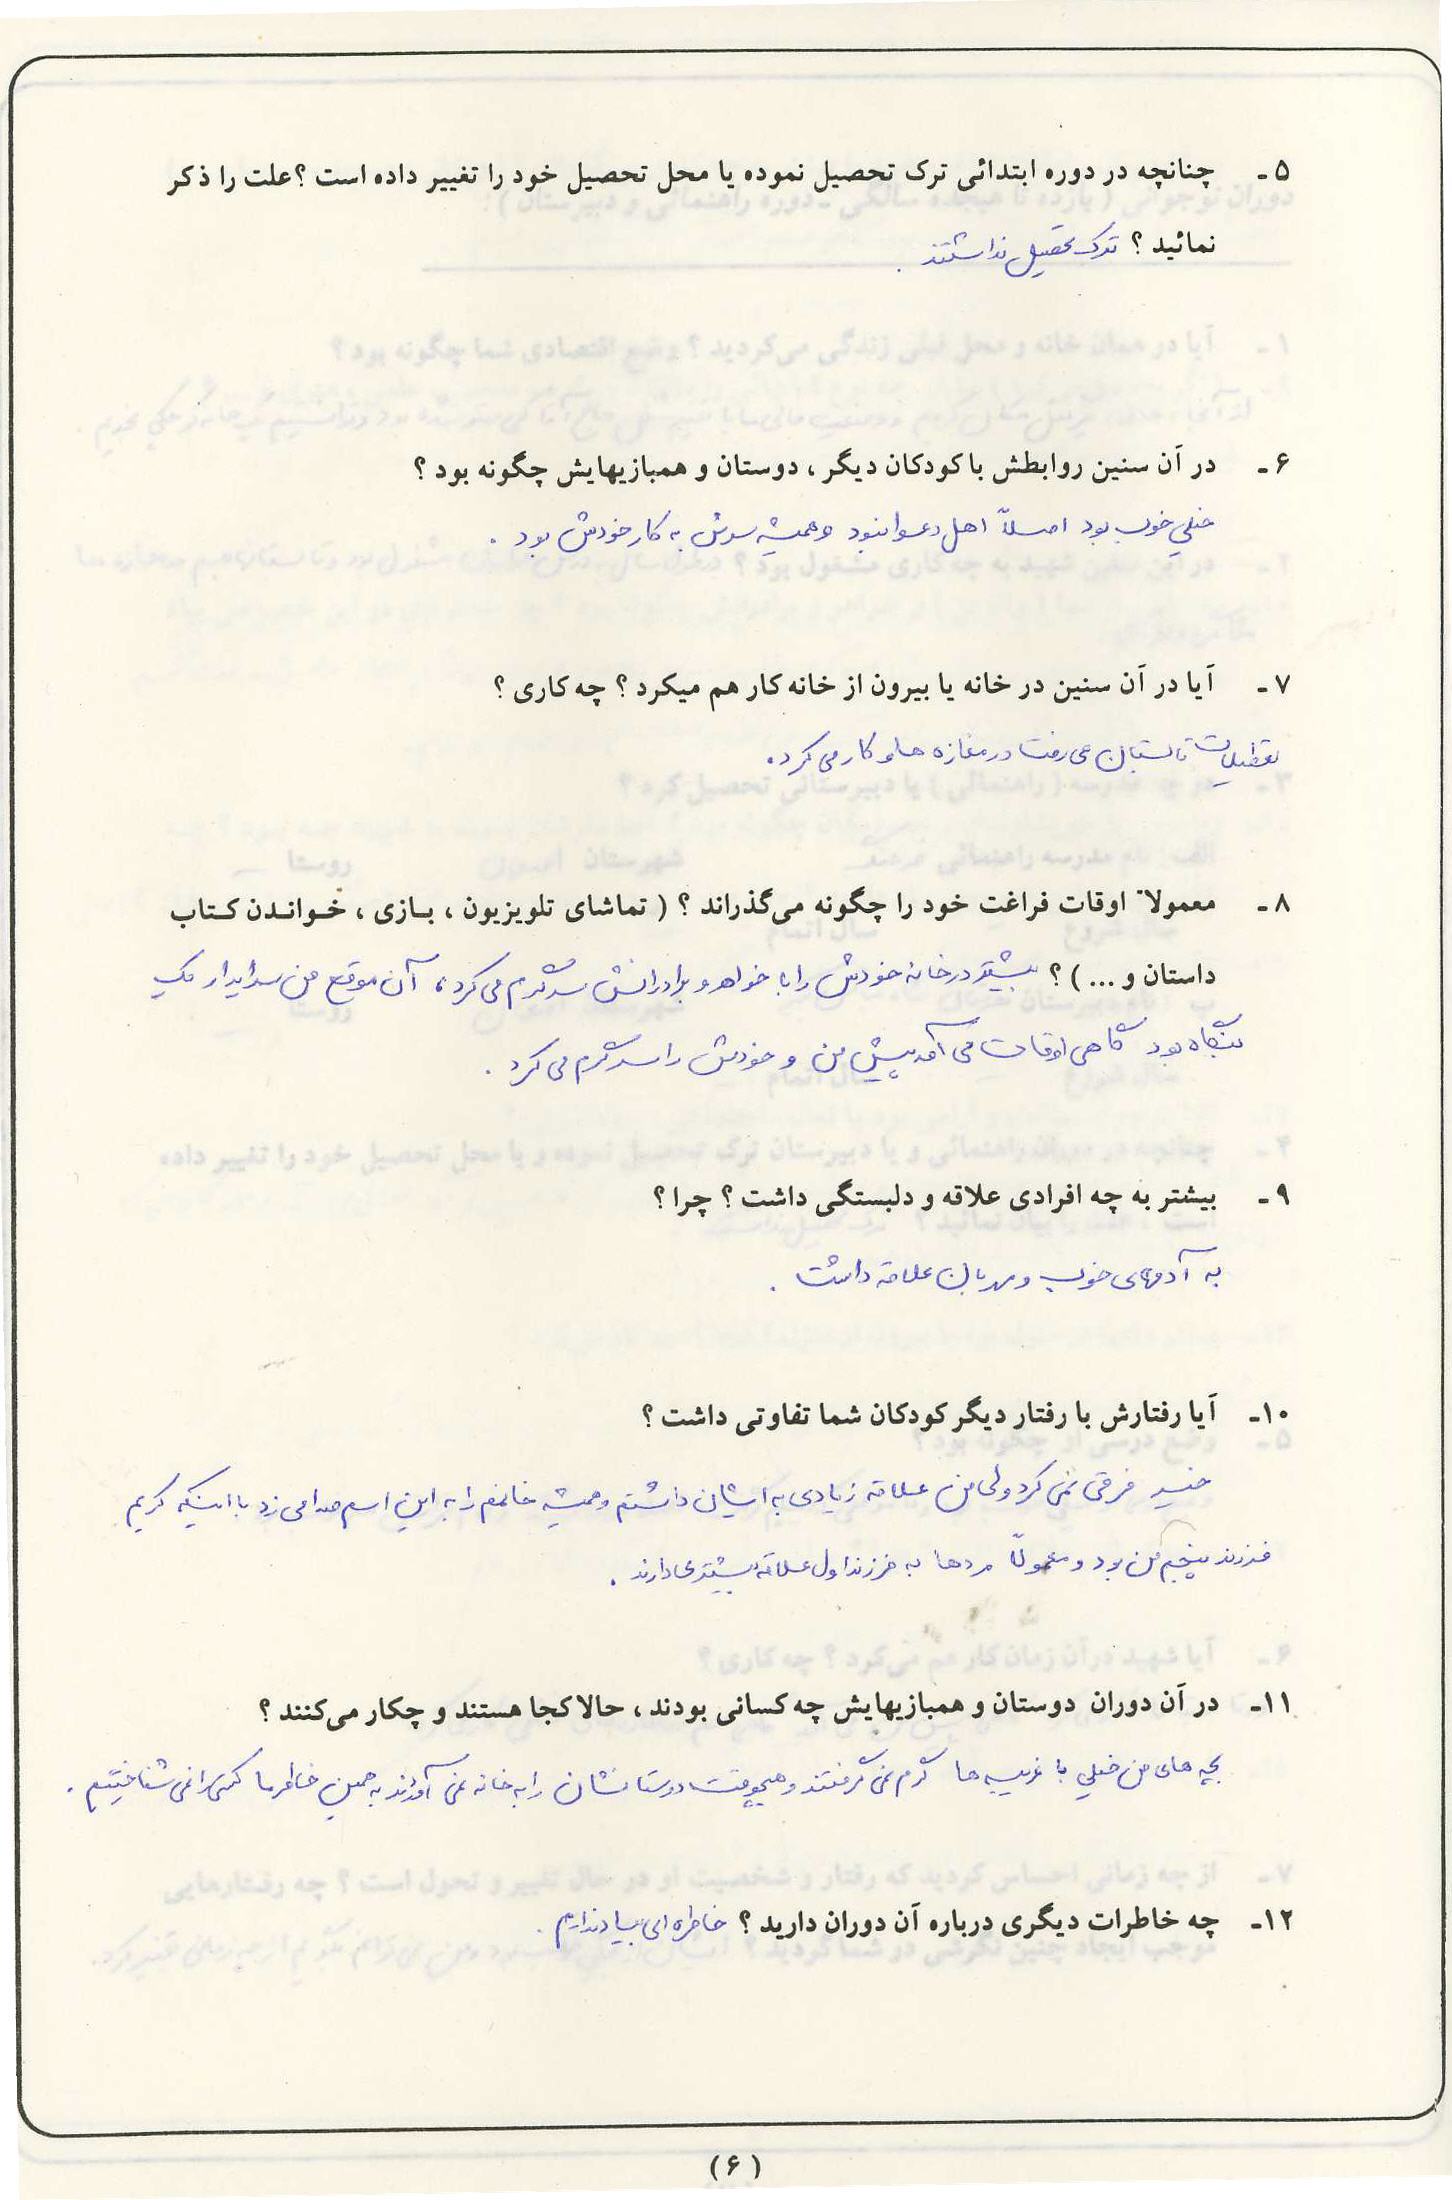 ۵- چنانچه در دوره ابتدائی ترک تحصیل نموده یا محل تحصیل خود را تغییر داده است ؟ علت را ذکر
نمائید ؟ ترک تحصیل نداشتند .
۶- در آن سنین روابطش با کودکان دیگر ، دوستان و همبازیهایش چگونه بود ؟
خیلی خوب بود اصلاً اهل دعوا نبود و همیشه سرش به کار خودش بود .
۷- آیا در آن سنین در خانه یا بیرون از خانه کار هم میکرد ؟ چه کاری ؟
تعطیلات تابستان می رفت در مغازه ها و کار می کرد .
۸- معمولاً اوقات فراغت خود را چگونه می‌گذراند ؟ ( تماشای تلویزیون ، بازی ، خواندن کتاب
داستان و ... ) ؟ بیشتر در خانه خودش را با خواهر و برادرانش سرگرم می کرد ، آن موقع من سرایدار یک
بنگاه بود گاهی اوقات می آمد پیش من و خودش را سرگرم می کرد .
۹- بیشتر به چه افرادی علاقه و دلبستگی داشت ؟ چرا ؟
به آدمهای خوب و مهربان علاقه داشت .
۱۰- آیا رفتارش با رفتار دیگر کودکان شما تفاوتی داشت ؟
خیر فرقی نمی کرد ولی من علاقه زیادی به ایشان داشتم و همیشه خانمم را به این اسم صدا می زد با اینکه کریم
فرزند پنجم من بود و معمولاً مردها به فرزند اول علاقه بیشتری دارند .
۱۱- در آن دوران دوستان و همبازیهایش چه کسانی بودند ، حالا کجا هستند و چکار می‌کنند ؟
بچه های من خیلی با غریبه ها گرم نمی گرفتند و هیچوقت دوستانشان را به خانه نمی آوردند به همین خاطر ما کسی را نمی شناختیم .
۱۲- چه خاطرات دیگری درباره آن دوران دارید ؟ خاطره ای بیاد ندارم .
( ۶ )